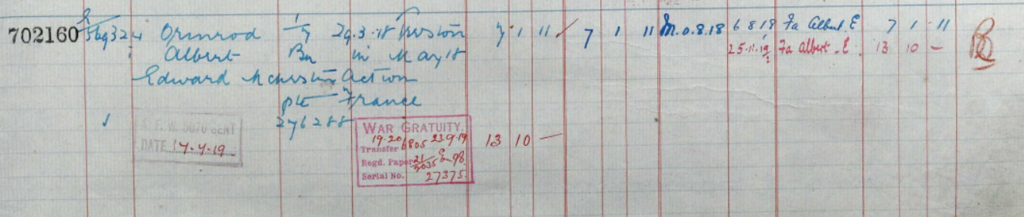 702160 Ormrod 1/7 29.3.18 Preston 7 1 11 7 1 11 M.O.8.18 6 8 18 Fa Albert E 7 1 11
Albert Bn in May 18 25.11.19 Fa Albert. E. 13 10 —
Edward Manchester Action
Pte France
276288
DATE 17-4-19
WAR GRATUITY.
19.20
Transfer 6805 23.9.19 13 10 —
Regd. Paper 98
Serial No. 27375